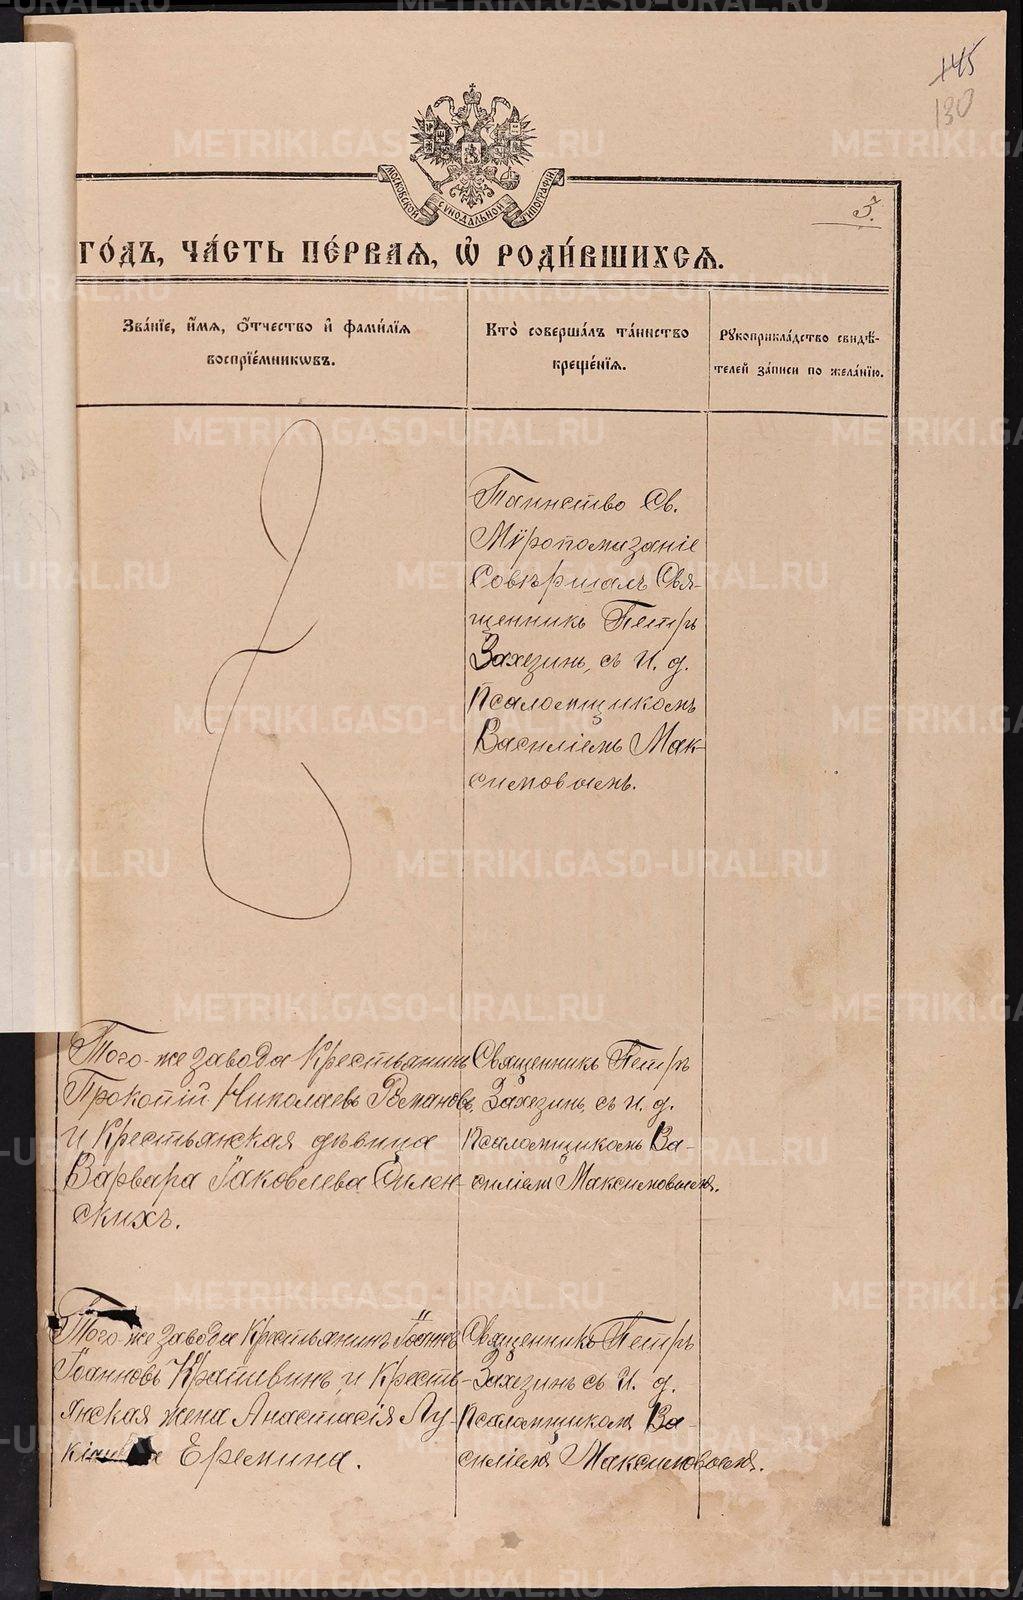 145
130
МОСКОВСКОЙ СѴНОДАЛЬНОЙ ТИПОГРАФІИ
5.
ГО́ДЪ, ЧА́СТЬ ПЕ́РВАѦ, Ѡ҆ РОДИ́ВШИХСѦ.
Зва́нїе, и҆́мѧ, ѻ҆́тчество и҆ фами́лїѧ
воспрїе́мникѡвъ.
Кто̀ соверша́лъ та́инство
креще́нїѧ.
Рꙋкоприкла́дство свидѣ́-
телей за́писи по жела́нїю.
Таинство Св.
Мѵропомазаніе
Совершалъ Свя-
щенникъ Петръ
Захезинъ, съ И. д.
Псаломщикомъ
Василіемъ Мак-
симовымъ.
Того-же завода Крестьянинъ
Прокопій Николаевъ Романовъ
и Крестьянская дѣвица
Варвара Іаковлева Филен-
скихъ.
Священникъ Петръ
Захезинъ, съ И. д.
Псаломщикомъ Ва-
силіемъ Максимовымъ.
Того-же завода Крестьянинъ Іоаннъ
Іоанновъ Крапивинъ и Кресть-
янская жена Анастасія Лу-
Еремина.
Священникъ Петръ
Захезинъ съ И. д.
Псаломщикомъ Ва-
силіемъ Максимовымъ.
METRIKI.GASO-URAL.RU